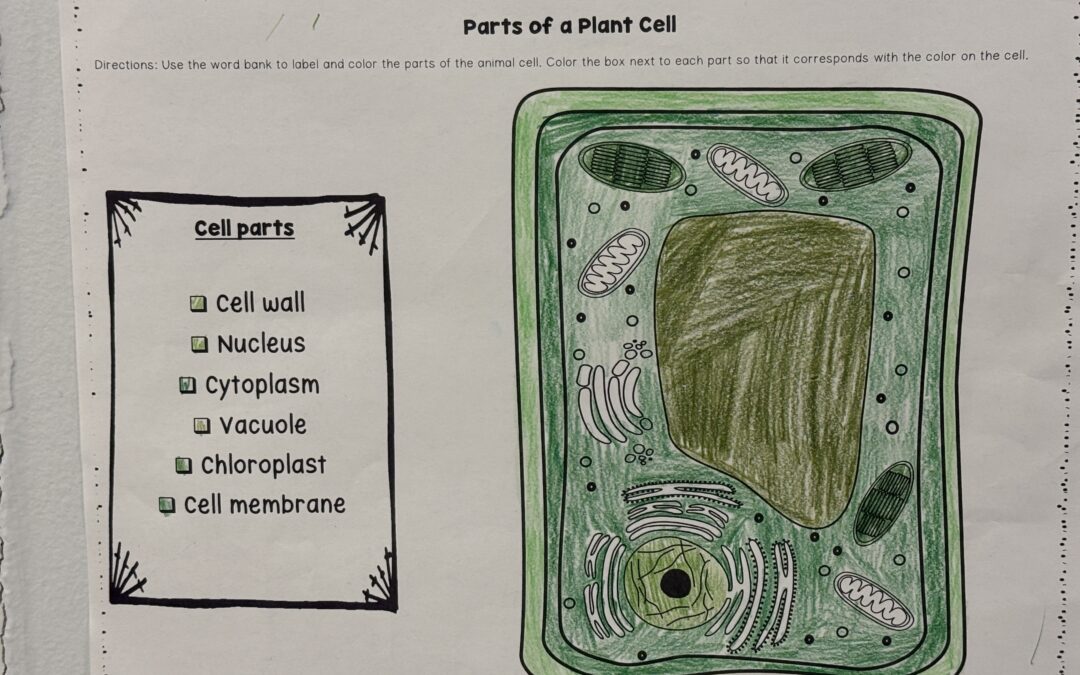 Parts of a Plant Cell
Directions: Use the word bank to label and color the parts of the animal cell. Color the box next to each part so that it corresponds with the color on the cell.
Cell parts
Cell wall
Nucleus
Cytoplasm
Vacuole
Chloroplast
Cell membrane